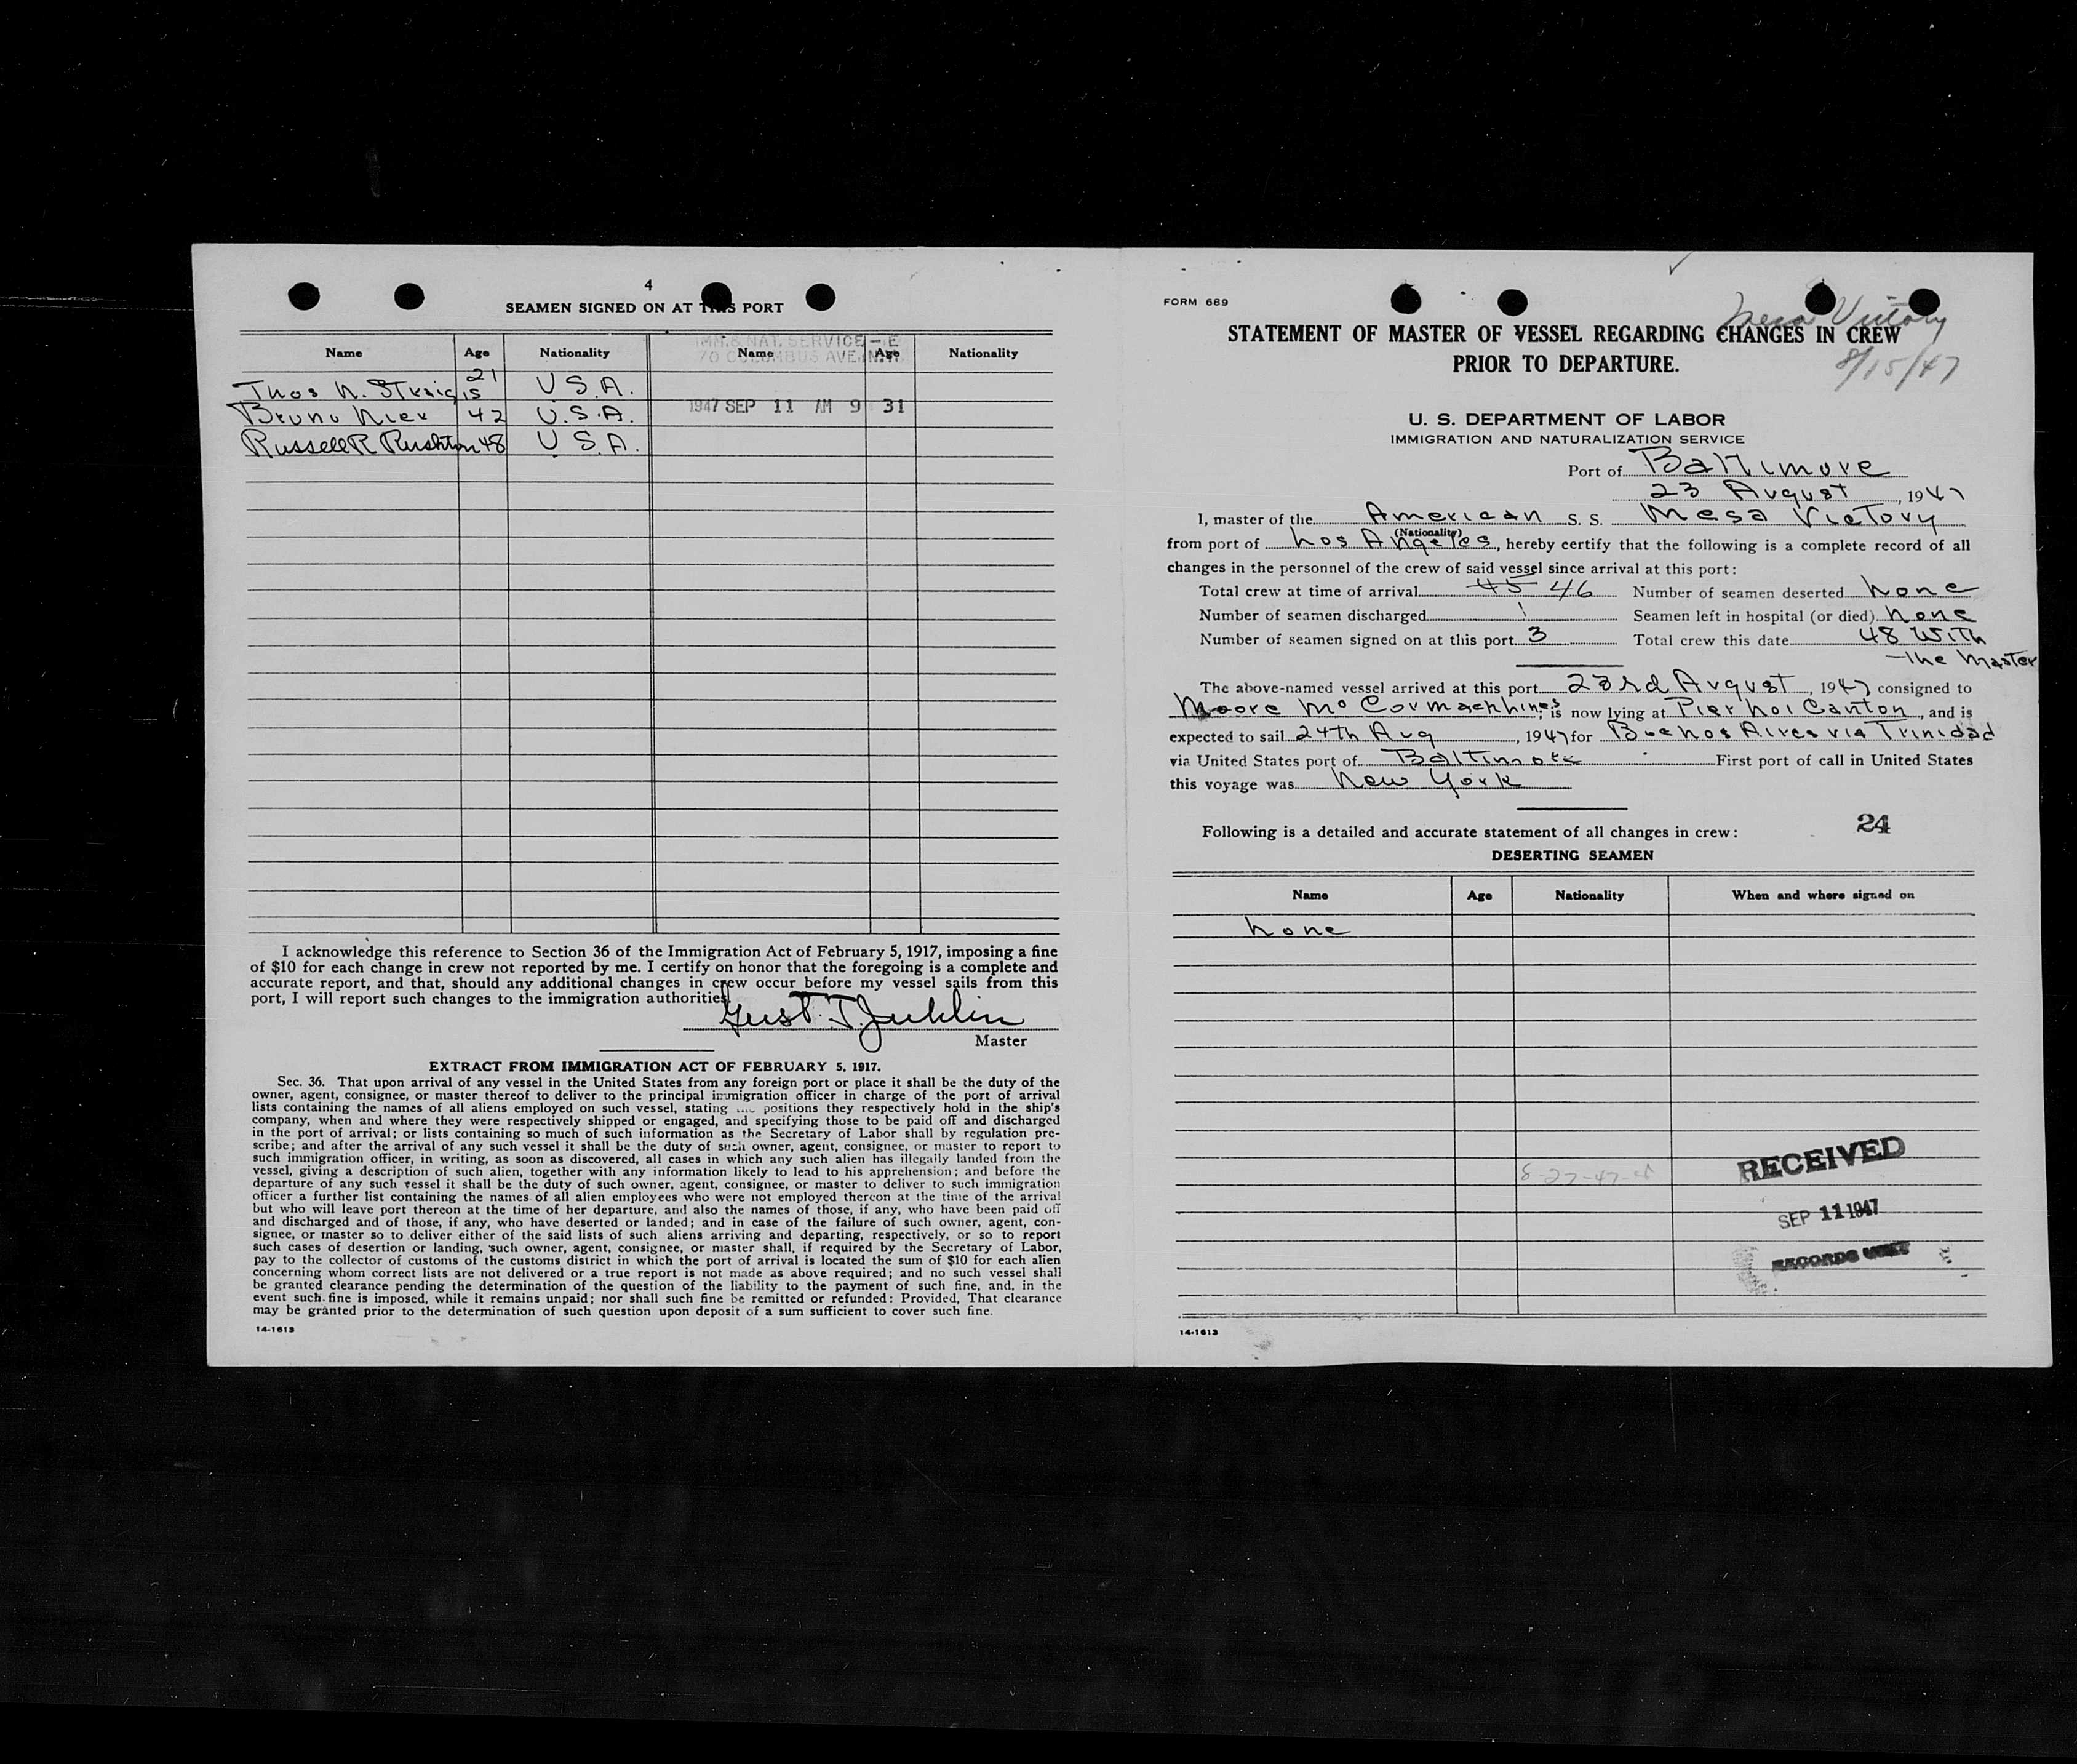 4
SEAMEN SIGNED ON AT THIS PORT
IMM. & NAT. SERVICE
70 COLUMBUS AVE. N.Y.
Name Age Nationality Name Age Nationality
Thos N. 21 U.S.A.
Bruno Nier 42 U.S.A.
1947 SEP 11 AM 9 31
Russell R Rushton 48 U.S.A.
I acknowledge this reference to Section 36 of the Immigration Act of February 5, 1917, imposing a fine
of $10 for each change in crew not reported by me. I certify on honor that the foregoing is a complete and
accurate report, and that, should any additional changes in crew occur before my vessel sails from this
port, I will report such changes to the immigration authorities.
Gust. T. Juhlin
Master
EXTRACT FROM IMMIGRATION ACT OF FEBRUARY 5, 1917.
Sec. 36. That upon arrival of any vessel in the United States from any foreign port or place it shall be the duty of the
owner, agent, consignee, or master thereof to deliver to the principal immigration officer in charge of the port of arrival
lists containing the names of all aliens employed on such vessel, stating the positions they respectively hold in the ship's
company, when and where they were respectively shipped or engaged, and specifying those to be paid off and discharged
in the port of arrival; or lists containing so much of such information as the Secretary of Labor shall by regulation pre-
scribe; and after the arrival of any such vessel it shall be the duty of such owner, agent, consignee, or master to report to
such immigration officer, in writing, as soon as discovered, all cases in which any such alien has illegally landed from the
vessel, giving a description of such alien, together with any information likely to lead to his apprehension; and before the
departure of any such vessel it shall be the duty of such owner, agent, consignee, or master to deliver to such immigration
officer a further list containing the names of all alien employees who were not employed thereon at the time of the arrival
but who will leave port thereon at the time of her departure, and also the names of those, if any, who have been paid off
and discharged and of those, if any, who have deserted or landed; and in case of the failure of such owner, agent, con-
signee, or master so to deliver either of the said lists of such aliens arriving and departing, respectively, or so to report
such cases of desertion or landing, such owner, agent, consignee, or master shall, if required by the Secretary of Labor,
pay to the collector of customs of the customs district in which the port of arrival is located the sum of $10 for each alien
concerning whom correct lists are not delivered or a true report is not made as above required; and no such vessel shall
be granted clearance pending the determination of the question of the liability to the payment of such fine, and, in the
event such fine is imposed, while it remains unpaid; nor shall such fine be remitted or refunded: Provided, That clearance
may be granted prior to the determination of such question upon deposit of a sum sufficient to cover such fine.
14-1613
FORM 689
Mesa Victory
8/15/47
STATEMENT OF MASTER OF VESSEL REGARDING CHANGES IN CREW
PRIOR TO DEPARTURE.
U. S. DEPARTMENT OF LABOR
IMMIGRATION AND NATURALIZATION SERVICE
Port of Baltimore
23 August, 1947
I, master of the American S. S. Mesa Victory
(Nationality)
from port of Los Angeles, hereby certify that the following is a complete record of all
changes in the personnel of the crew of said vessel since arrival at this port:
Total crew at time of arrival 45 46 Number of seamen deserted none
Number of seamen discharged 1 Seamen left in hospital (or died) none
Number of seamen signed on at this port 3 Total crew this date 48 With
The Master
The above-named vessel arrived at this port 23rd August, 1947 consigned to
Moore McCormack Lines; is now lying at Pier No 1 Canton, and is
expected to sail 24th Aug, 1947 for Buenos Aires via Trinidad
via United States port of Baltimore First port of call in United States
this voyage was New York
Following is a detailed and accurate statement of all changes in crew: 24
DESERTING SEAMEN
Name Age Nationality When and where signed on
none
RECEIVED
8-27-47
SEP 11 1947
RECORDS UNIT
14-1613